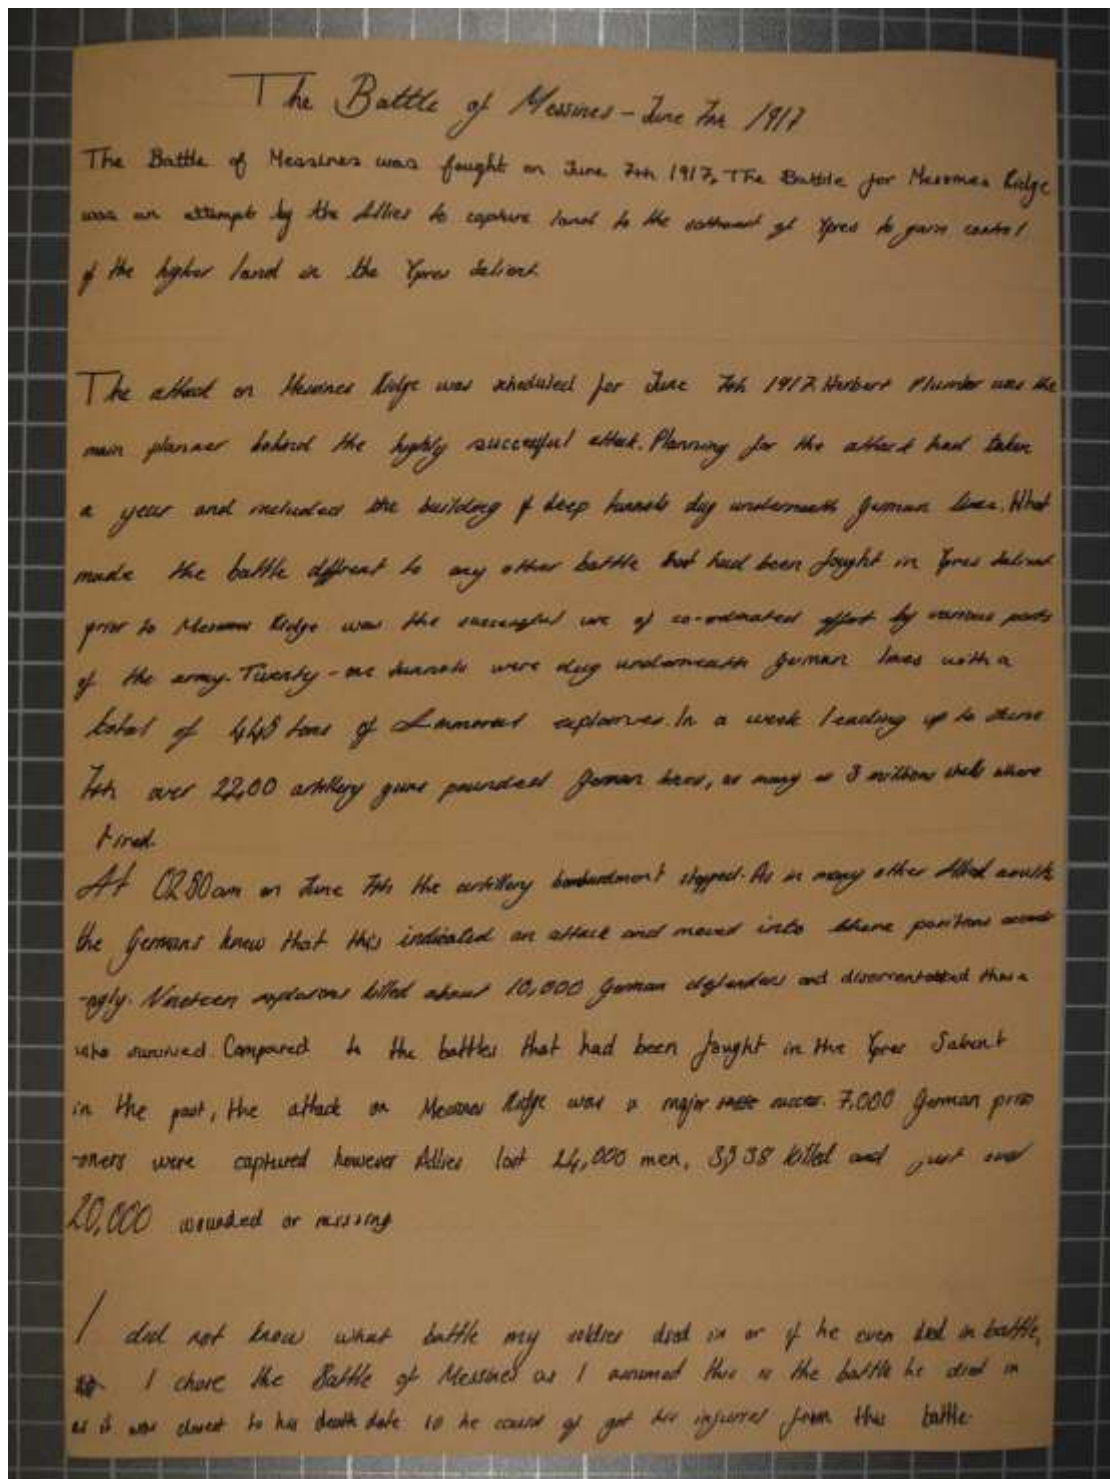 The Battle of Messines - June 7th 1917
The Battle of Messines was fought on June 7th 1917. The Battle for Messines Ridge
was an attempt by the Allies to capture land to the of Ypres to gain control
of the higher land in the Ypres Salient.
The attack on Messines Ridge was scheduled for June 7th 1917. Herbert Plumber was the
main planner behind the highly successful attack. Planning for the attack had taken
a year and included the building of deep tunnels dug underneath German lines. What
made the battle diffrent to any other battle that had been fought in Ypres Salient
prior to Messines Ridge was the successful use of co-ordinated effort by various parts
of the army. Twenty-one tunnels were dug underneath German lines with a
total of 445 tons of explosives. In a week leading up to June
7th over 22,00 artillery guns pounded German lines, as many as 3 millions shells where
fired.
At 0250am on June 7th the artillery bombardment stopped. As in many other Allied
the Germans knew that this indicated an attack and moved into there positions
-ngly. Nineteen explosions killed about 10,000 German defenders and those
who survived. Compared to the battles that had been fought in the Ypres Salient
in the past, the attack on Messines Ridge was a major success. 7,000 German priso
-oners were captured however Allies lost 24,000 men, 3,938 killed and just over
20,000 wounded or missing
I did not know what battle my soldier died in or if he even died in battle,
I chose the Battle of Messines as I assumed this is the battle he died in
as it was closest to his death date so he could of got his injurres from this battle.